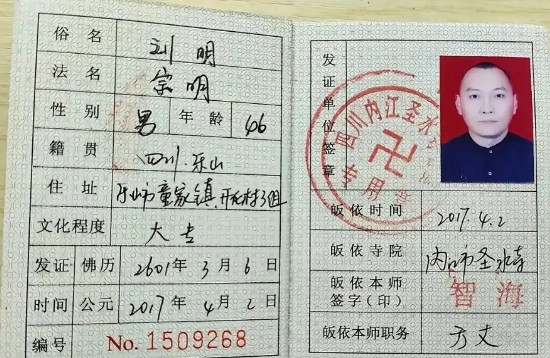 俗名 刘明
法名 宗明
性别 男 年龄 46
籍贯 四川.乐山
住址 乐山市童家镇.开龙村3组
文化程度 大专
发证 佛历 2601年 3月 6日
时间 公元 2017年 4月 2日
编号 No. 1509268
发证单位签章
四川内江圣水
专用章
皈依时间 2017.4.2
皈依寺院 内江市圣水寺
皈依本师签字(印) 智海
皈依本师职务 方丈